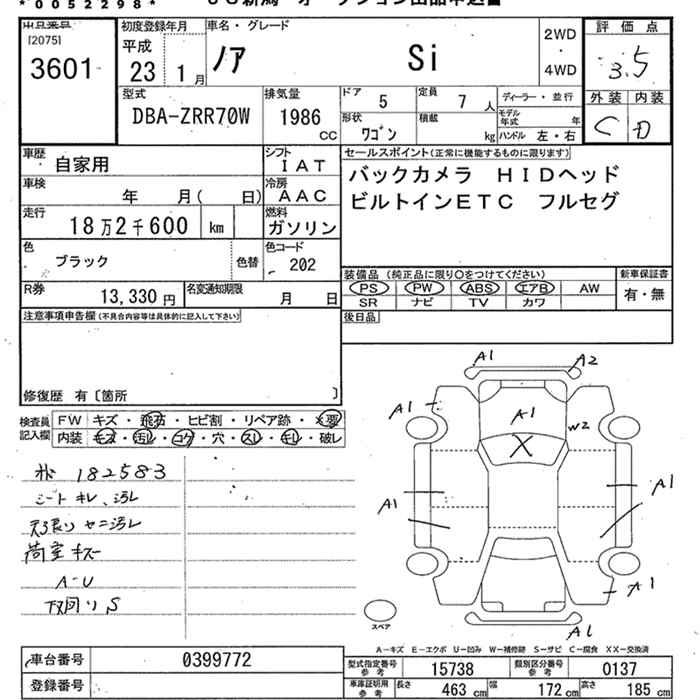 *0052298*
出品番号 初度登録年月 車名・グレード 評価点
[2075] 平成 2WD
3601 23 1月 ノア Si ・ 3.5
4WD
外装 内装
C D
型式 排気量 ドア 5 定員 7 人 ディーラー・並行
DBA-ZRR70W 1986 cc 形状 ワゴン 積載 kg モデル年式 年
ハンドル 左・右
車歴 自家用 シフト IAT セールスポイント(正常に機能するものに限ります)
車検 年 月( 日) 冷房 AAC バックカメラ HIDヘッド
走行 18万2千600 km 燃料 ガソリン ビルトインETC フルセグ
色 ブラック 色替 色コード 202
装備品(純正品に限り○をつけてください) 新車保証書
R券 13,330円 名変通知期限 月 日 PS PW ABS エアB AW 有・無
SR ナビ TV カワ
注意事項申告欄(不具合内容等は具体的に記入して下さい) 後日品
修復歴 有〔箇所 〕
検査員 FW キズ・飛石・ヒビ割・リペア跡・×要
記入欄 内装 キズ・汚レ・コゲ・穴・スレ・キレ・破レ
A1 A2
A1 A1 W2
X
A1 A1
A1
A1
182583
シートキレ、汚レ
天張り ヤニ汚レ
荷室キズ
A-U
下回りS
スペア
A-キズ E-エクボ U-凹み W-補修跡 S-サビ C-腐食 XX-交換済
車台番号 0399772 型式指定番号 参考 15738 類別区分番号 参考 0137
登録番号 車庫証明用 参考 長さ 463 cm 幅 172 cm 高さ 185 cm